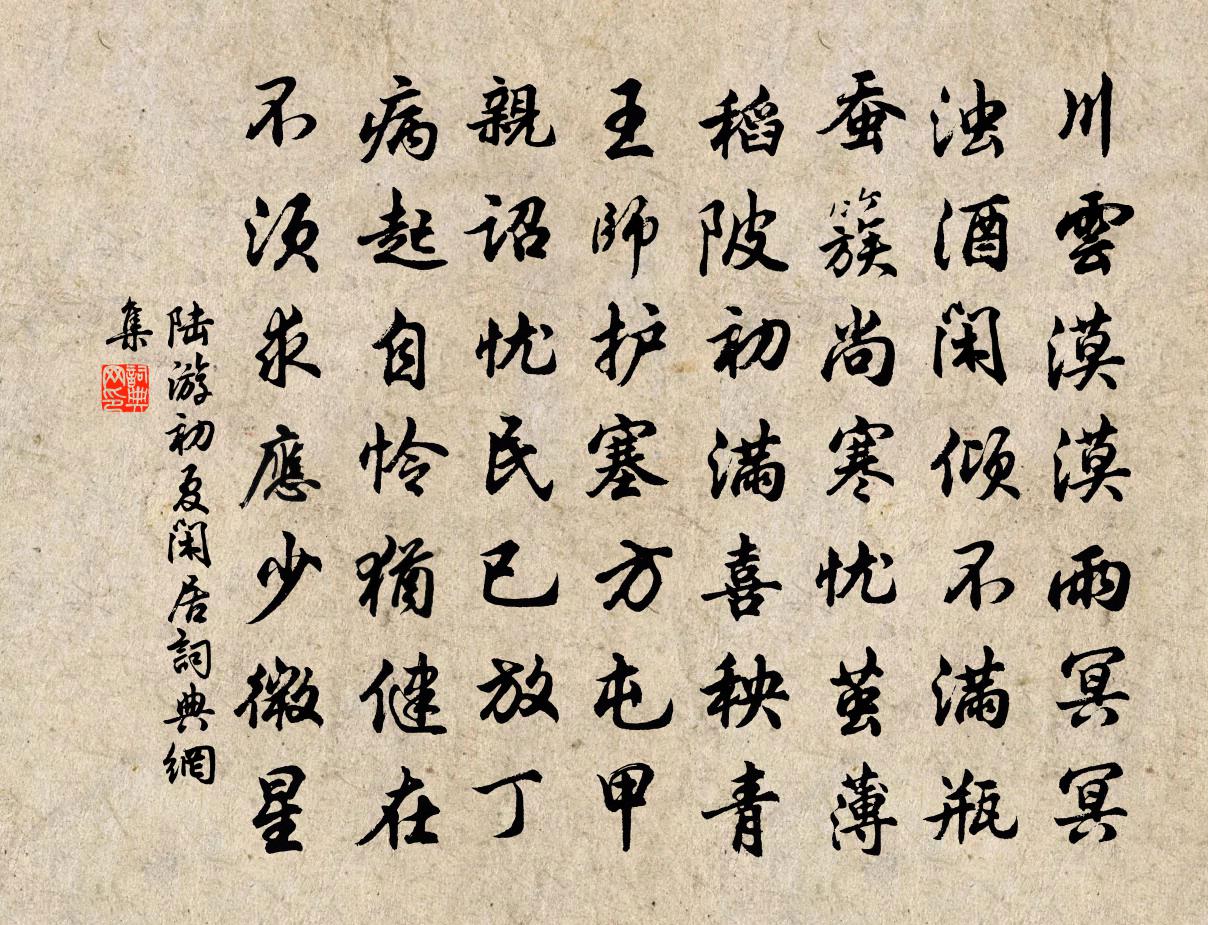 川雲漠漠雨冥冥
浊酒闲倾不满瓶
蚕簇尚寒忧茧薄
稻陂初满喜秧青
王師护塞方屯甲
親詔忧民已放丁
病起自怜猶健在
不须求應少微星
陆游初夏闲居詞典網
集
詞典
网印